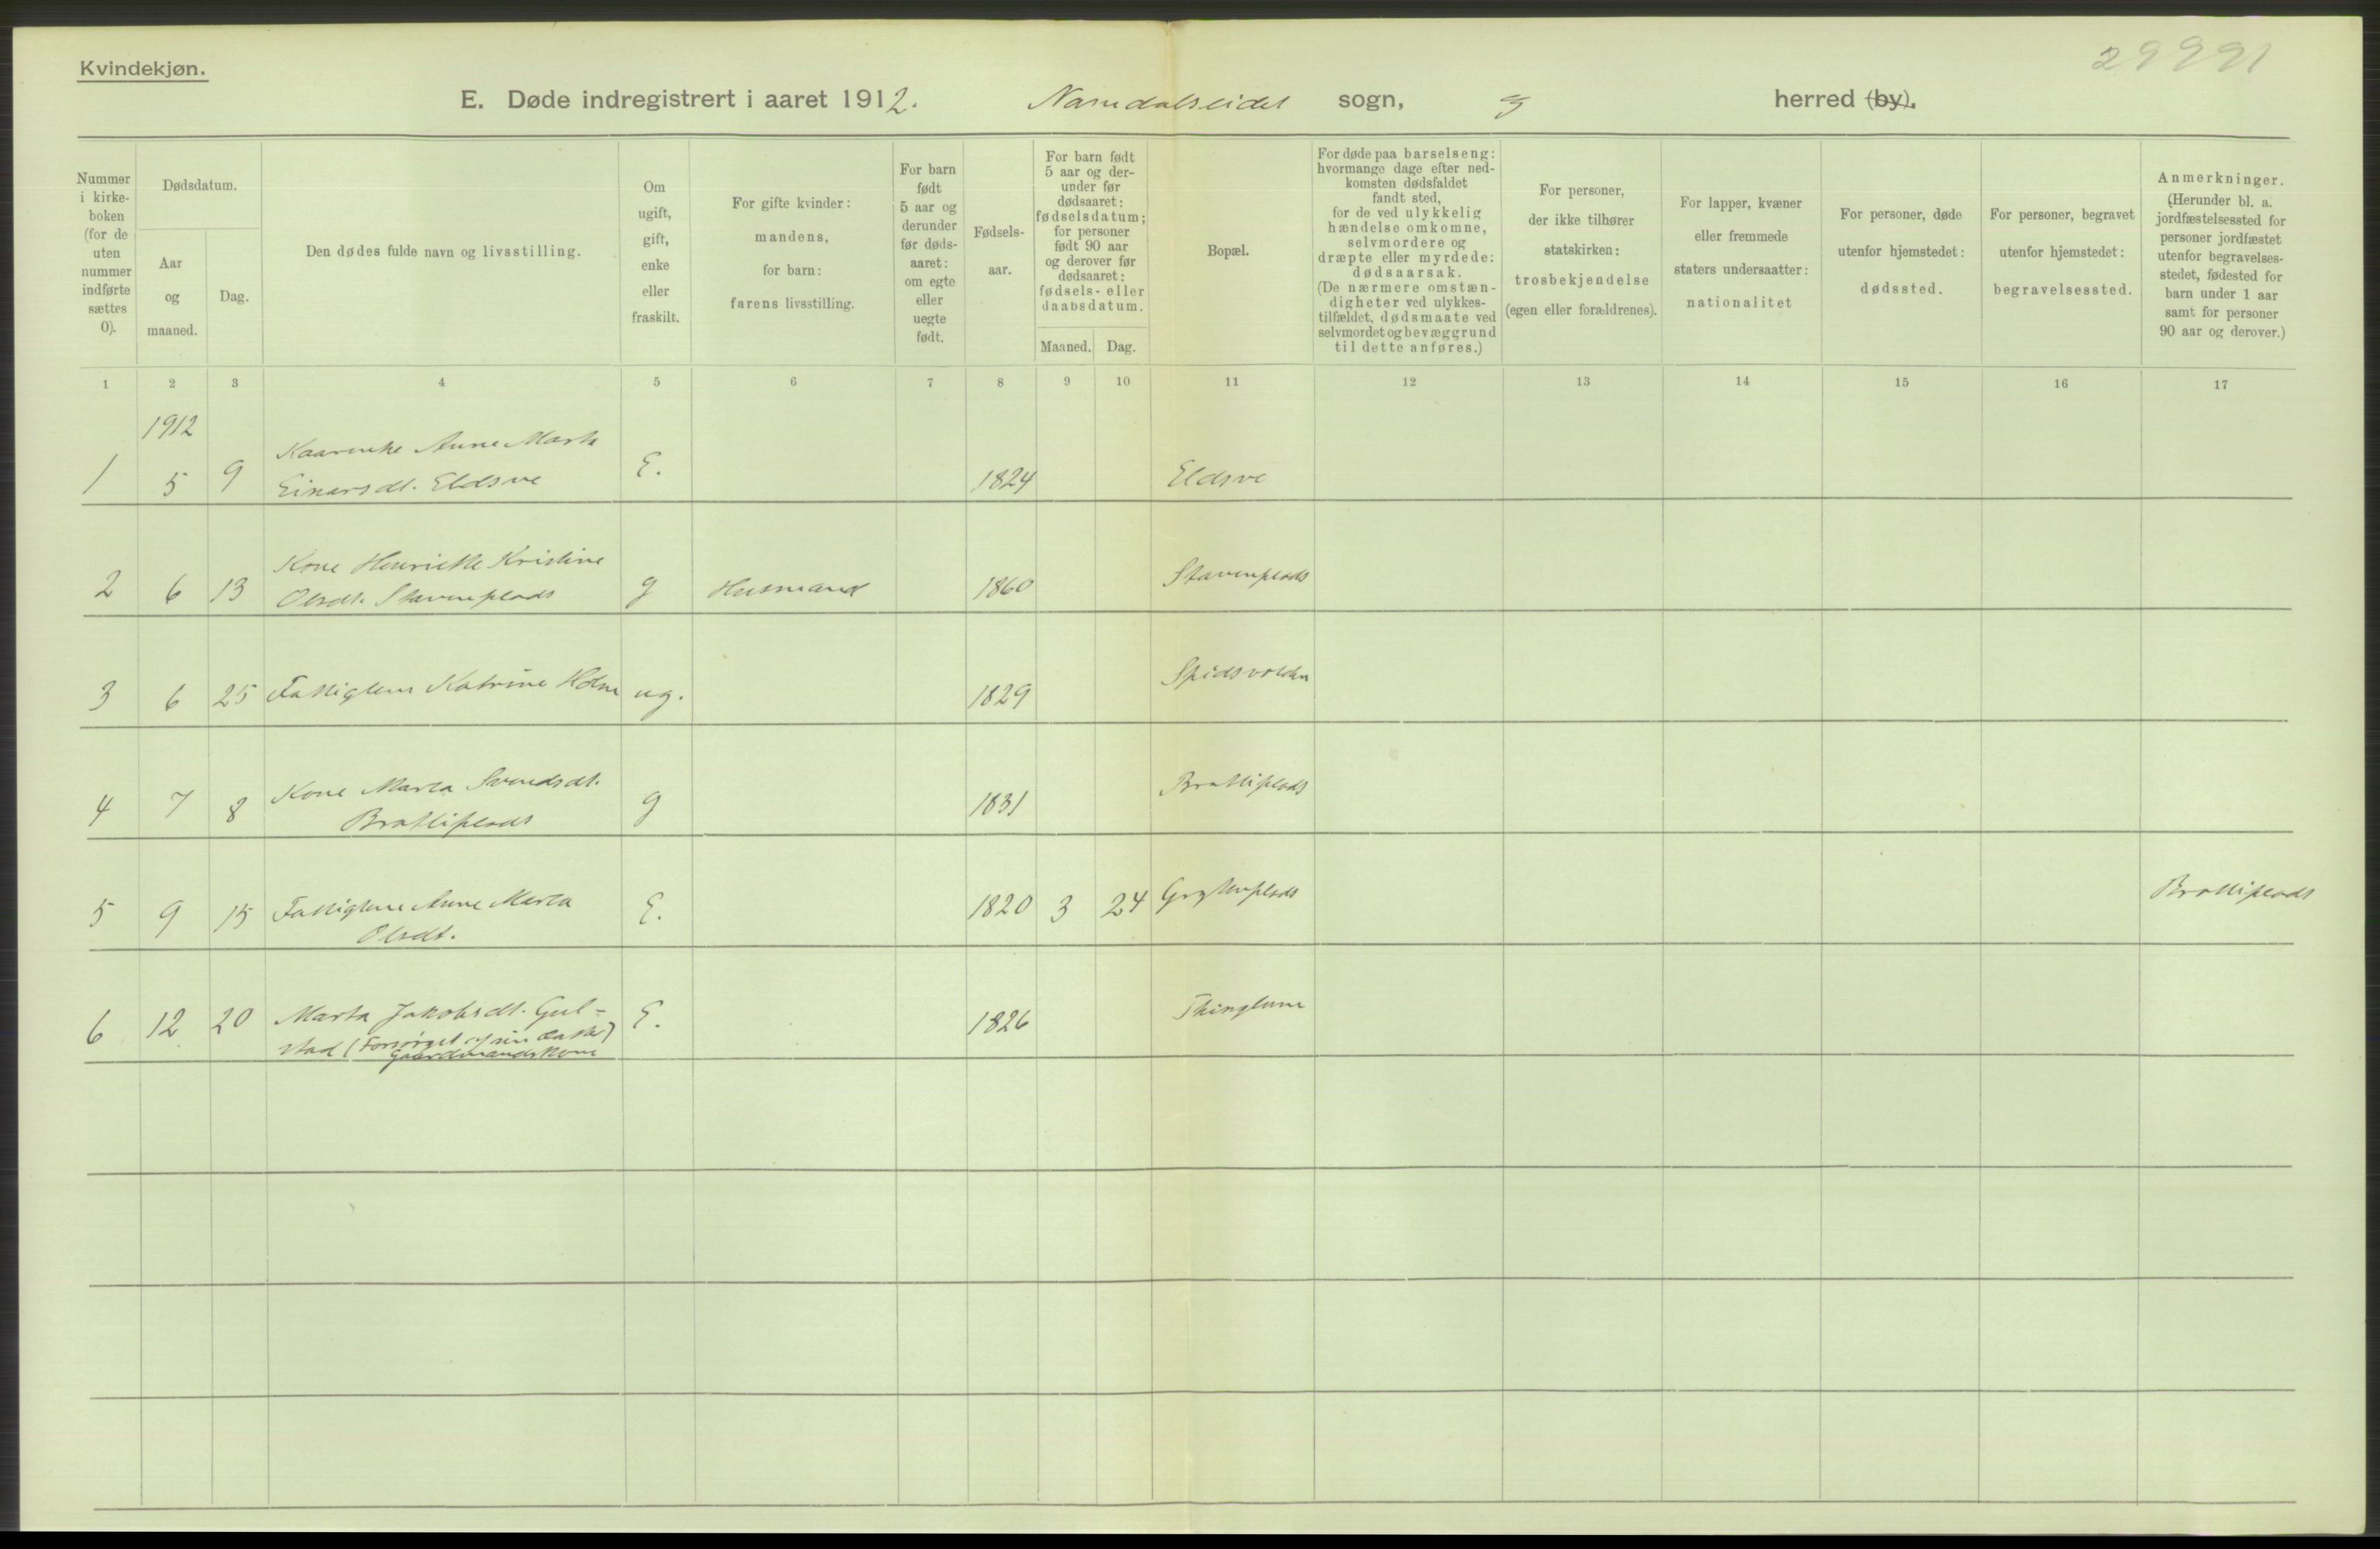 Kvindekjøn.
29991
E. Døde indregistrert i aaret 1912. Namdalseidet sogn, herred (by).
Nummer i kirkeboken (for de uten nummer indførte sættes 0).
Dødsdatum.
Aar og maaned.
Dag.
Den dødes fulde navn og livsstilling.
Om ugift, gift, enke eller fraskilt.
For gifte kvinder: mandens, for barn: farens livsstilling.
For barn født 5 aar og derunder før dødsaaret: om egte eller uegte født.
Fødselsaar.
For barn født 5 aar og derunder før dødsaaret: fødselsdatum; for personer født 90 aar og derover før dødsaaret: fødsels- eller daabsdatum.
Maaned. Dag.
Bopæl.
For døde paa barselseng: hvormange dage efter nedkomsten dødsfaldet fandt sted, for de ved ulykkelig hændelse omkomne, selvmordere og dræpte eller myrdede: dødsaarsak. (De nærmere omstændigheter ved ulykkestilfældet, dødsmaate ved selvmordet og bevæggrund til dette anføres.)
For personer, der ikke tilhører statskirken: trosbekjendelse (egen eller forældrenes).
For lapper, kvæner eller fremmede staters undersaatter: nationalitet
For personer, døde utenfor hjemstedet: dødssted.
For personer, begravet utenfor hjemstedet: begravelsessted.
Anmerkninger. (Herunder bl. a. jordfæstelsessted for personer jordfæstet utenfor begravelsesstedet, fødested for barn under 1 aar samt for personer 90 aar og derover.)
1 2 3 4 5 6 7 8 9 10 11 12 13 14 15 16 17
1912
Anne Marta
1 5 9 Einarsdt. Eldsve E. 1824 Eldsve
Kone Henriette Kristine
2 6 13 Olsdt. Stavenplads g Husmand 1860 Stavenplads
3 6 25 Fattiglem Katrine Holm ug. 1829
Kone Marta Svendsdt.
4 7 8 Bratliplads g 1831 Bratliplads
5 9 15 Fattiglem Anne Marta E. 1820 3 24 Bratliplads
Olsdt.
6 12 20 Marta Jakobsdt. Gul- E. 1826
stad (Forsørget af sin
Gaardmandskone